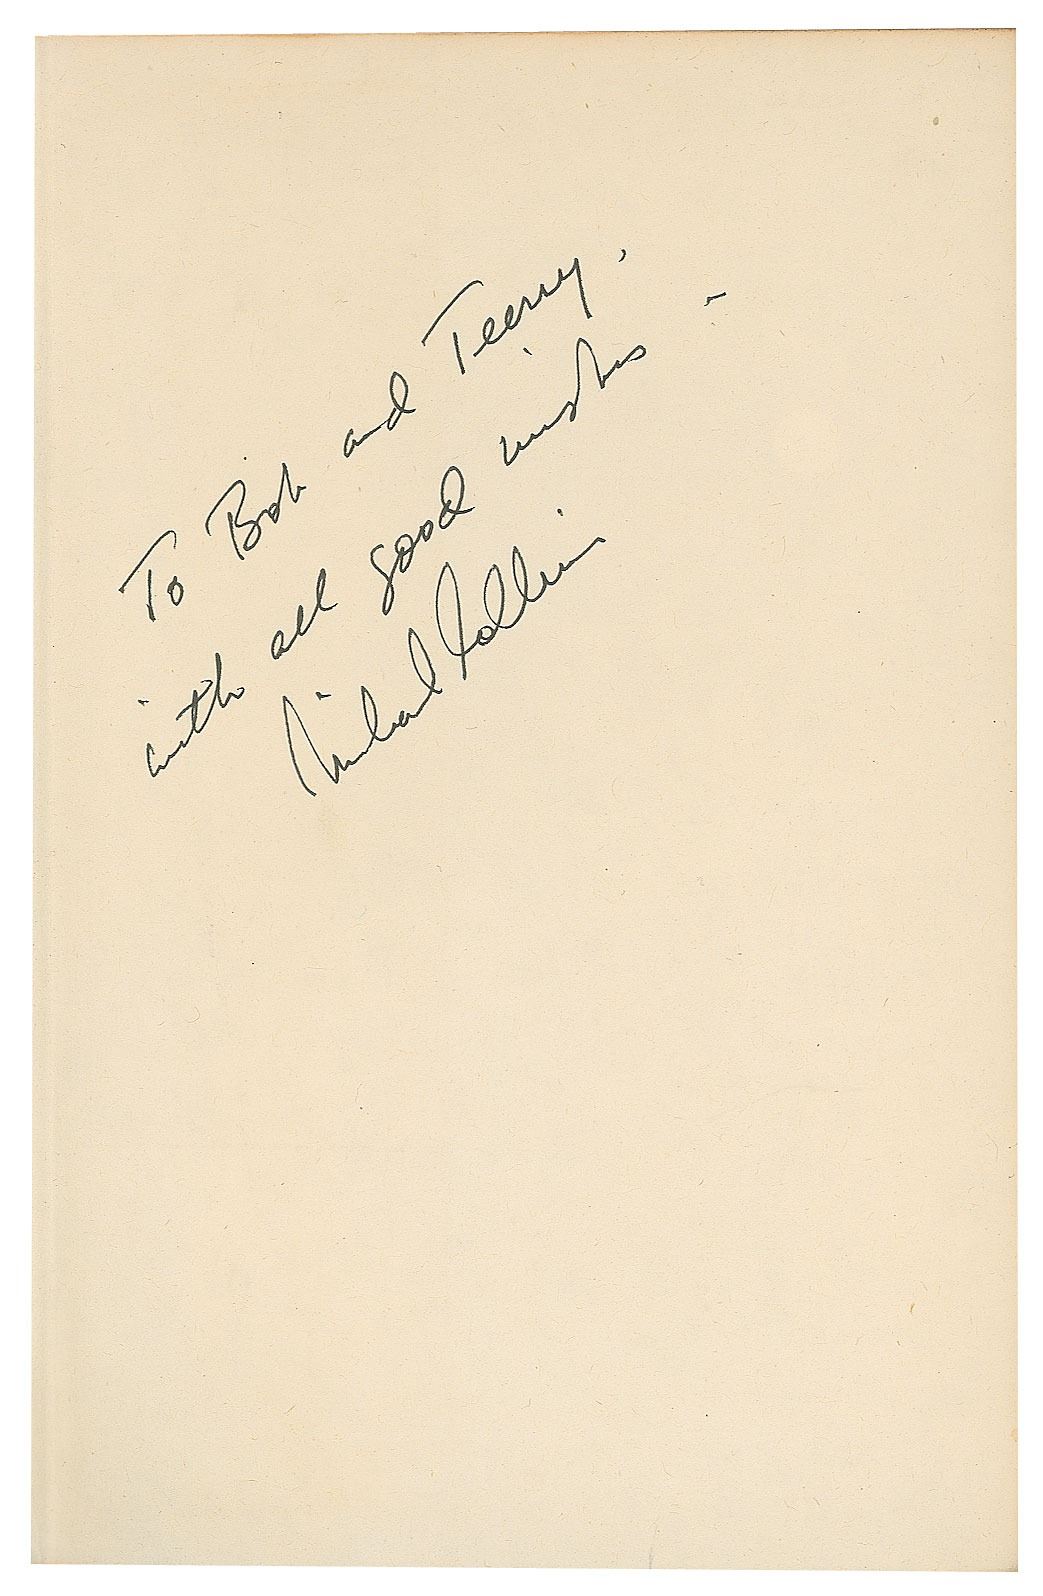 To Bob and Teeny,
with all good wishes –
Michael Collins